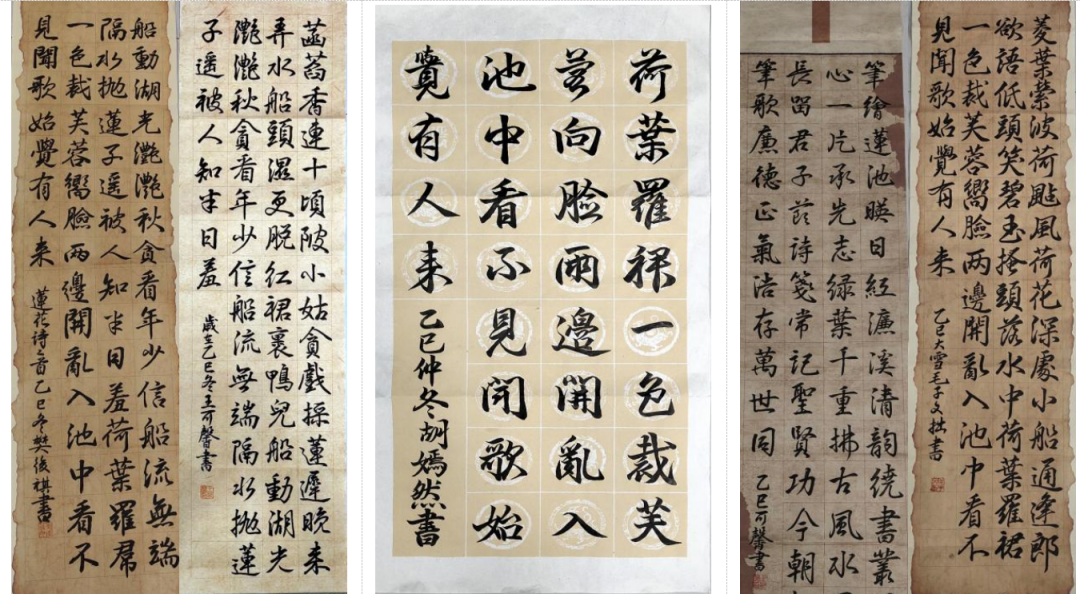 船動湖光灔灔秋貪看年少信船流無端
隔水抛蓮子遥被人知半日羞荷葉羅帬
一色裁芙蓉嚮臉两邊開亂入池中看不
見聞歌始覺有人来 蓮花诗二首乙巳冬樊俊祺書
菡萏香連十頃陂小姑貪戲採蓮遲晚来
弄水船頭濕更脱紅裙裹鴨兒船動湖光
灔灔秋貪看年少信船流無端隔水抛蓮
子遥被人知半日羞 歲在乙巳冬王可馨書
荷葉羅裙一色裁芙
蓉向臉兩邊開亂入
池中看不見聞歌始
覺有人来 乙巳仲冬胡嫣然書
筆繪蓮池暎日紅濂溪清韵繞書叢
心一片承先志緑葉千重拂古風水
長留君子诗箋常記聖賢功今朝
筆歌廉德正氣浩存萬世同 乙巳可馨書
菱葉縈波荷颭風荷花深處小船通逢郎
欲語低頭笑碧玉搔頭落水中荷葉羅裙
一色裁芙蓉嚮臉两邊開亂入池中看不
見聞歌始覺有人来 乙巳大雪毛子文拙書